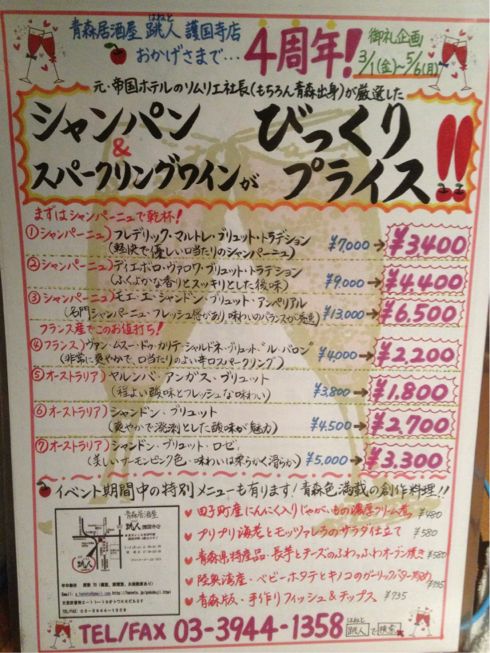 青森居酒屋 跳人 護国寺店
はねと
おかげさまで… 4周年! 御礼企画
3/1(金)～5/6(月)
元・帝国ホテルのソムリエ社長(もちろん青森出身)が厳選した
シャンパン びっくり
&
スパークリングワインが プライス!!
まずはシャンパーニュで乾杯!
①シャンパーニュ) フレデリック・マルトレ・ブリュット・トラデション
(軽快で優しい口当たりのシャンパーニュ) ¥7,000→¥3400
②シャンパーニュ) ディエボロ・ヴァロワ・ブリュット・トラデション
(ふくよかな香りとスッキリとした後味) ¥9,000→¥4,400
③シャンパーニュ) モエ・エ・シャンドン・ブリュット・アンペリアル
(名門シャンパーニュ・フレッシュ感があり、味わいのバランスが秀逸) ¥13,000→¥6,500
フランス産でこのお値打ち!
④フランス) ヴァン・ムスー・ドゥ・カリテ・シャルドネ・ブリュット・"ル・バロン"
(非常に爽やかで、口当たりのよい辛口スパークリング) ¥4,000→¥2,200
⑤オーストラリア) ヤルンバ・アンガス・ブリュット
(程よい酸味とフレッシュな味わい) ¥3,800→¥1,800
⑥オーストラリア) シャンドン・ブリュット
(爽やかで溌溂とした酸味が魅力) ¥4,500→¥2,700
⑦オーストラリア) シャンドン・ブリュット・ロゼ
(美しいサーモンピンク色・味わいは柔らかく滑らか) ¥5,000→¥3,300
イベント期間中の特別メニューも有ります!青森色満載の創作料理!!
青森居酒屋
跳人 護国寺店
03-3944-1358
田子町産にんにく入りじゃがいもの濃厚クリーム煮 ¥480
プリプリ海老とモッツァレラのサラダ仕立て ¥580
青森県特産品・長芋とチーズのふわっふわオーブン焼き ¥580
陸奥湾産・ベビーホタテとキノコのガーリックバター炒め
青森版・手作りフィッシュ&チップス ¥735
TEL/FAX 03-3944-1358 はねと 跳人で検索